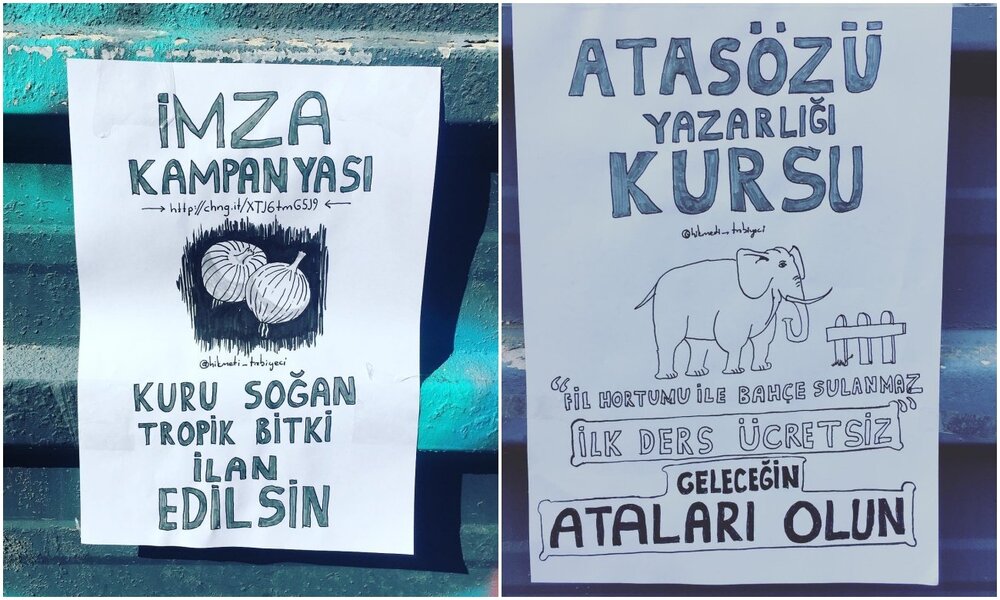 İMZA
KAMPANYASI
→ http://chng.it/XTJ6tmG5J9 ←
@hikmeti_tabiyeci
KURU SOĞAN
TROPİK BİTKİ
İLAN
EDİLSİN
ATASÖZÜ
YAZARLIĞI
KURSU
@hikmeti_tabiyeci
“FİL HORTUMU İLE BAHÇE SULANMAZ”
İLK DERS ÜCRETSİZ
GELECEĞİN
ATALARI OLUN